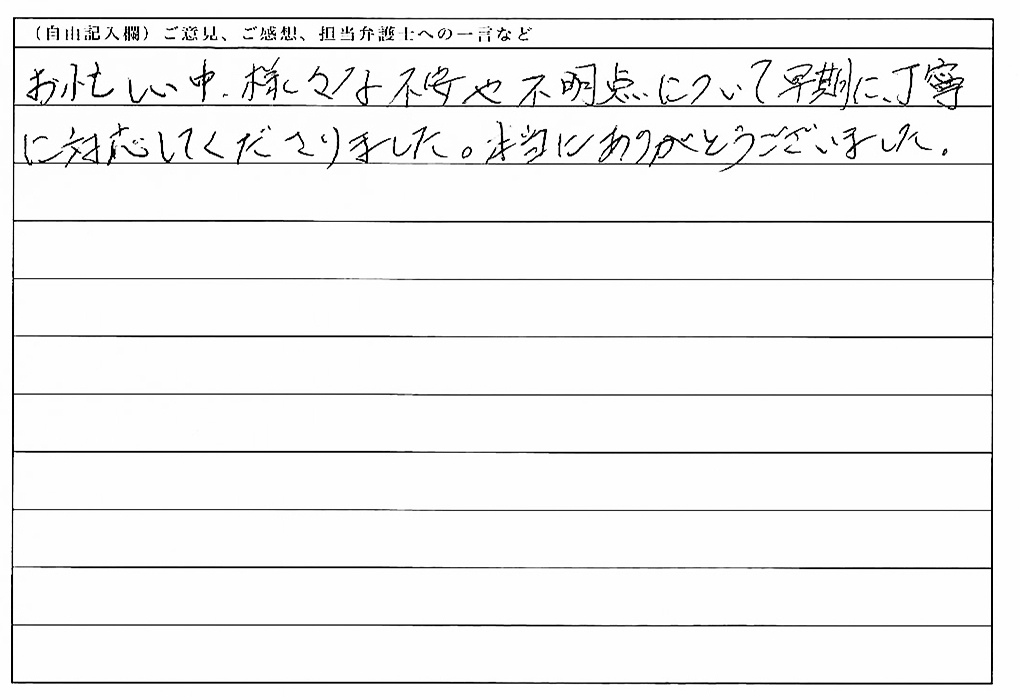 （自由記入欄）ご意見、ご感想、担当弁護士への一言など
お忙しい中、様々な不安や不明点について早期に、丁寧
に対応してくださりました。本当にありがとうございました。